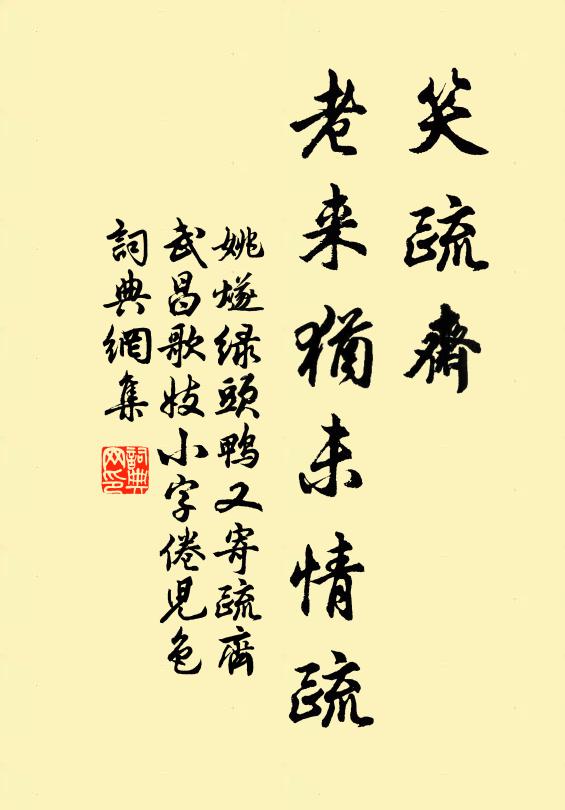 笑疏齋
老来猶未情疏
姚燧绿頭鴨又寄疏齋
武昌歌妓小字倦児色
詞典網集
詞典網印